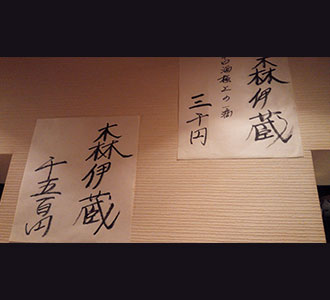 森伊蔵
古酒極上の一滴
三千円
森伊蔵
千五百円